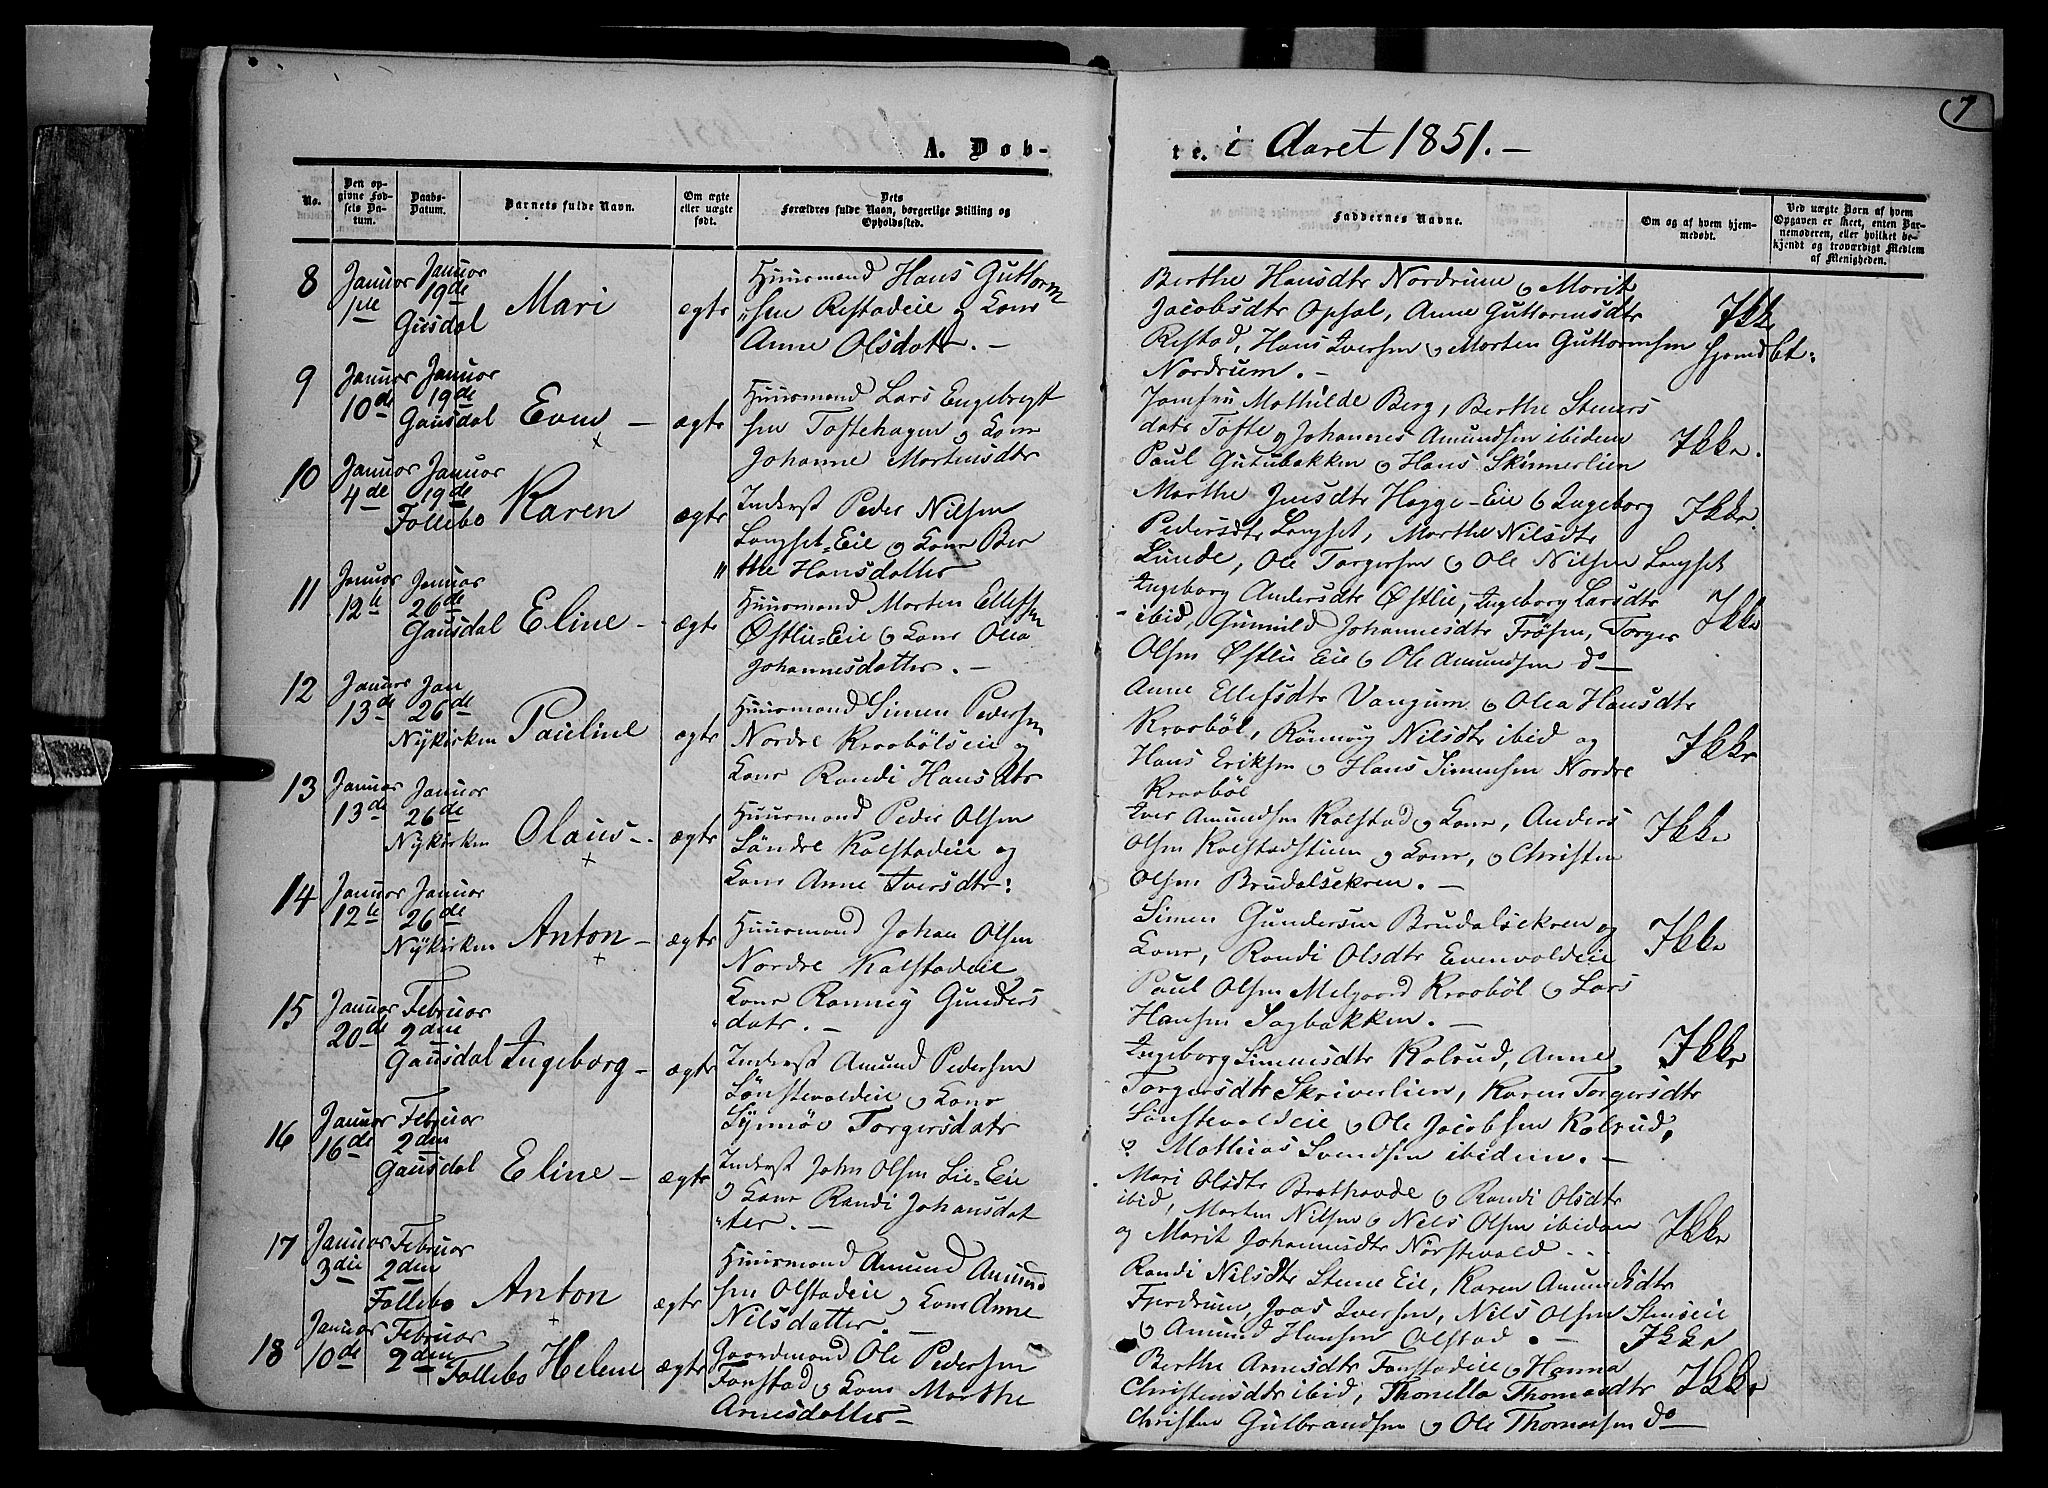 7
A. Døb-
te. i Aaret 1851. -
No.
Den op-
givne Fød-
sels Da-
tum.
Daabs-
Datum.
Barnets fulde Navn.
Om ægte
eller uægte
født.
Dets
Forældres fulde Navn, borgerlige Stilling og
Opholdssted.
Faddernes Navne.
Om og af hvem hjem-
medøbt.
Ved uægte Børn af hvem
Opgaven er skeet, enten Bar-
nemoderen, eller hvilket be-
kjendt og troværdigt Medlem
af Menigheden.
8
Januar
1ste
Januar
19de
Gausdal
Mari
ægte
Huusmand Hans Guttorm
"sen Restadeie og Kone
Anne Olsdatr. -
Berthe Hansdtr Nordrum og Marit
Jacobsdtr Opsal, Anne Guttormsdtr
Restad, Hans Iversen og Morten Guttormsen
Nordrum. -
Ikke
hjemdbt:
9
Januar
10de
Januar
19de
Gausdal
Even -
ægte
Huusmand Lars Engebregt
sen Toftehagen og Kone
Johanne Mortensdtr
Jomfru Mathilde Berg, Berthe Steners
datr Tofte og Johannes Amundsen ibidem
Paul Gutubakken og Hans Skinnerlien
Ikke.
10
Januar
4de
Januar
19de
Follebo
Karen
ægte
Inderst Peder Nilsen
Longset-Eie og Kone Ber
"the Hansdatter
Marthe Jensdtr Hegge-Eie og Ingeborg
Pedersdtr Longset, Marthe Nilsdtr
Lunde, Ole Torgersen og Ole Nilsen Longset
Ikke.
11
Januar
12te
Januar
26de
Gausdal
Eline -
ægte
Huusmand Morten Ellefsen
Østlie-Eie og Kone Olea
Johannesdatter. -
Ingeborg Andersdtr Østlie, Ingeborg Larsdtr
- ibid, Gunnild Johannesdtr Frøsen, Torger
Olsen Østlie Eie og Ole Amundsen do
Ikke
12
Januar
13de
Jan
26de
Nykirken
Pauline
ægte
Huusmand Simen Pedersen
Nordre Kraabølseie og
Kone Randi Hansdtr
Anne Ellefsdtr Vangum og Olea Hansdtr
Kraabøl, Rønnoug Nilsdtr ibid og
Hans Eriksen og Hans Simensen Nordre
Kraabøl
Ikke
13
Januar
13de
Januar
26de
Nykirken
Olaus -
ægte
Huusmand Peder Olsen
Søndre Kalstadeie og
Kone Anne Iversdtr:
Iver Amundsen Kalstad og Kone, Anders
Olsen Kalstadstuen og Kone, og Christen
Olsen Brudalsekren. -
Ikke
14
Januar
12te
Januar
26de
Nykirken
Anton -
ægte
Huusmand Johan Olsen
Nordre Kalstadeie
Kone Rønneg Gunders
datr. -
Simen Gundersen Brudalsekren og
Kone, Randi Olsdtr Evenvoldeie
Paul Olsen Melgaard Kraabøl og Lars
Hansen Sagbakken. -
Ikke
15
Januar
20de
Februar
2den
Gausdal
Ingeborg -
ægte
Inderst Amund Pedersen
Sønstevoldeie og Kone
Synnøv Torgersdatr
Ingeborg Simensdtr Kalrud, Anne
Torgersdtr Skriverlien, Karen Torgersdtr
Sønstevoldeie og Ole Jacobsen Kalrud,
og Mathias Svendsen ibidem. -
Ikke
16
Januar
16de
Februar
2den
Gausdal
Eline -
ægte
Inderst John Olsen Lie-Eie
og Kone Randi Johansdat
"ter. -
Mari Olsdtr Brathavde og Randi Olsdtr
ibid, Morten Nilsen og Nils Olsen ibidem
og Marit Johannesdtr Nørstevold -
Ikke
17
Januar
3die
Februar
2den
Follebo
Anton
ægte
Huusmand Amund Amund
sen Olstadeie og Kone Anne
Nilsdatter. -
Randi Nilsdtr Steneeie, Karen Amundsdtr
Fjerdrum, Joas Iversen, Nils Olsen Stenseie
og Amund Hansen Olstad. -
Ikke
18
Januar
10de
Februar
2den
Follebo
Helene
ægte
Gaardmand Ole Pedersen
Fonstad og Kone Marthe
Arnesdatter -
Berthe Arnesdtr Fonstadeie og Hanna
Christensdtr ibid, Thonetta Thomasdtr
Christen Gulbrandsen og Ole Thomassen do
Ikke